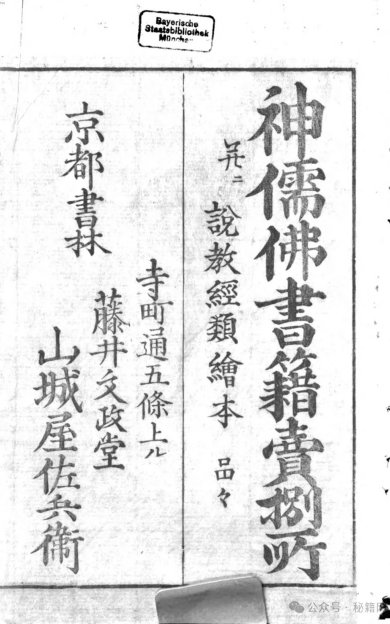 Bayerische
Staatsbibliothek
München
神儒佛書籍賣捌所
幷ニ 說教經類繪本 品々
京都書林
寺町通五條上ル
藤井文政堂
山城屋佐兵衞
公众号 · 秘籍